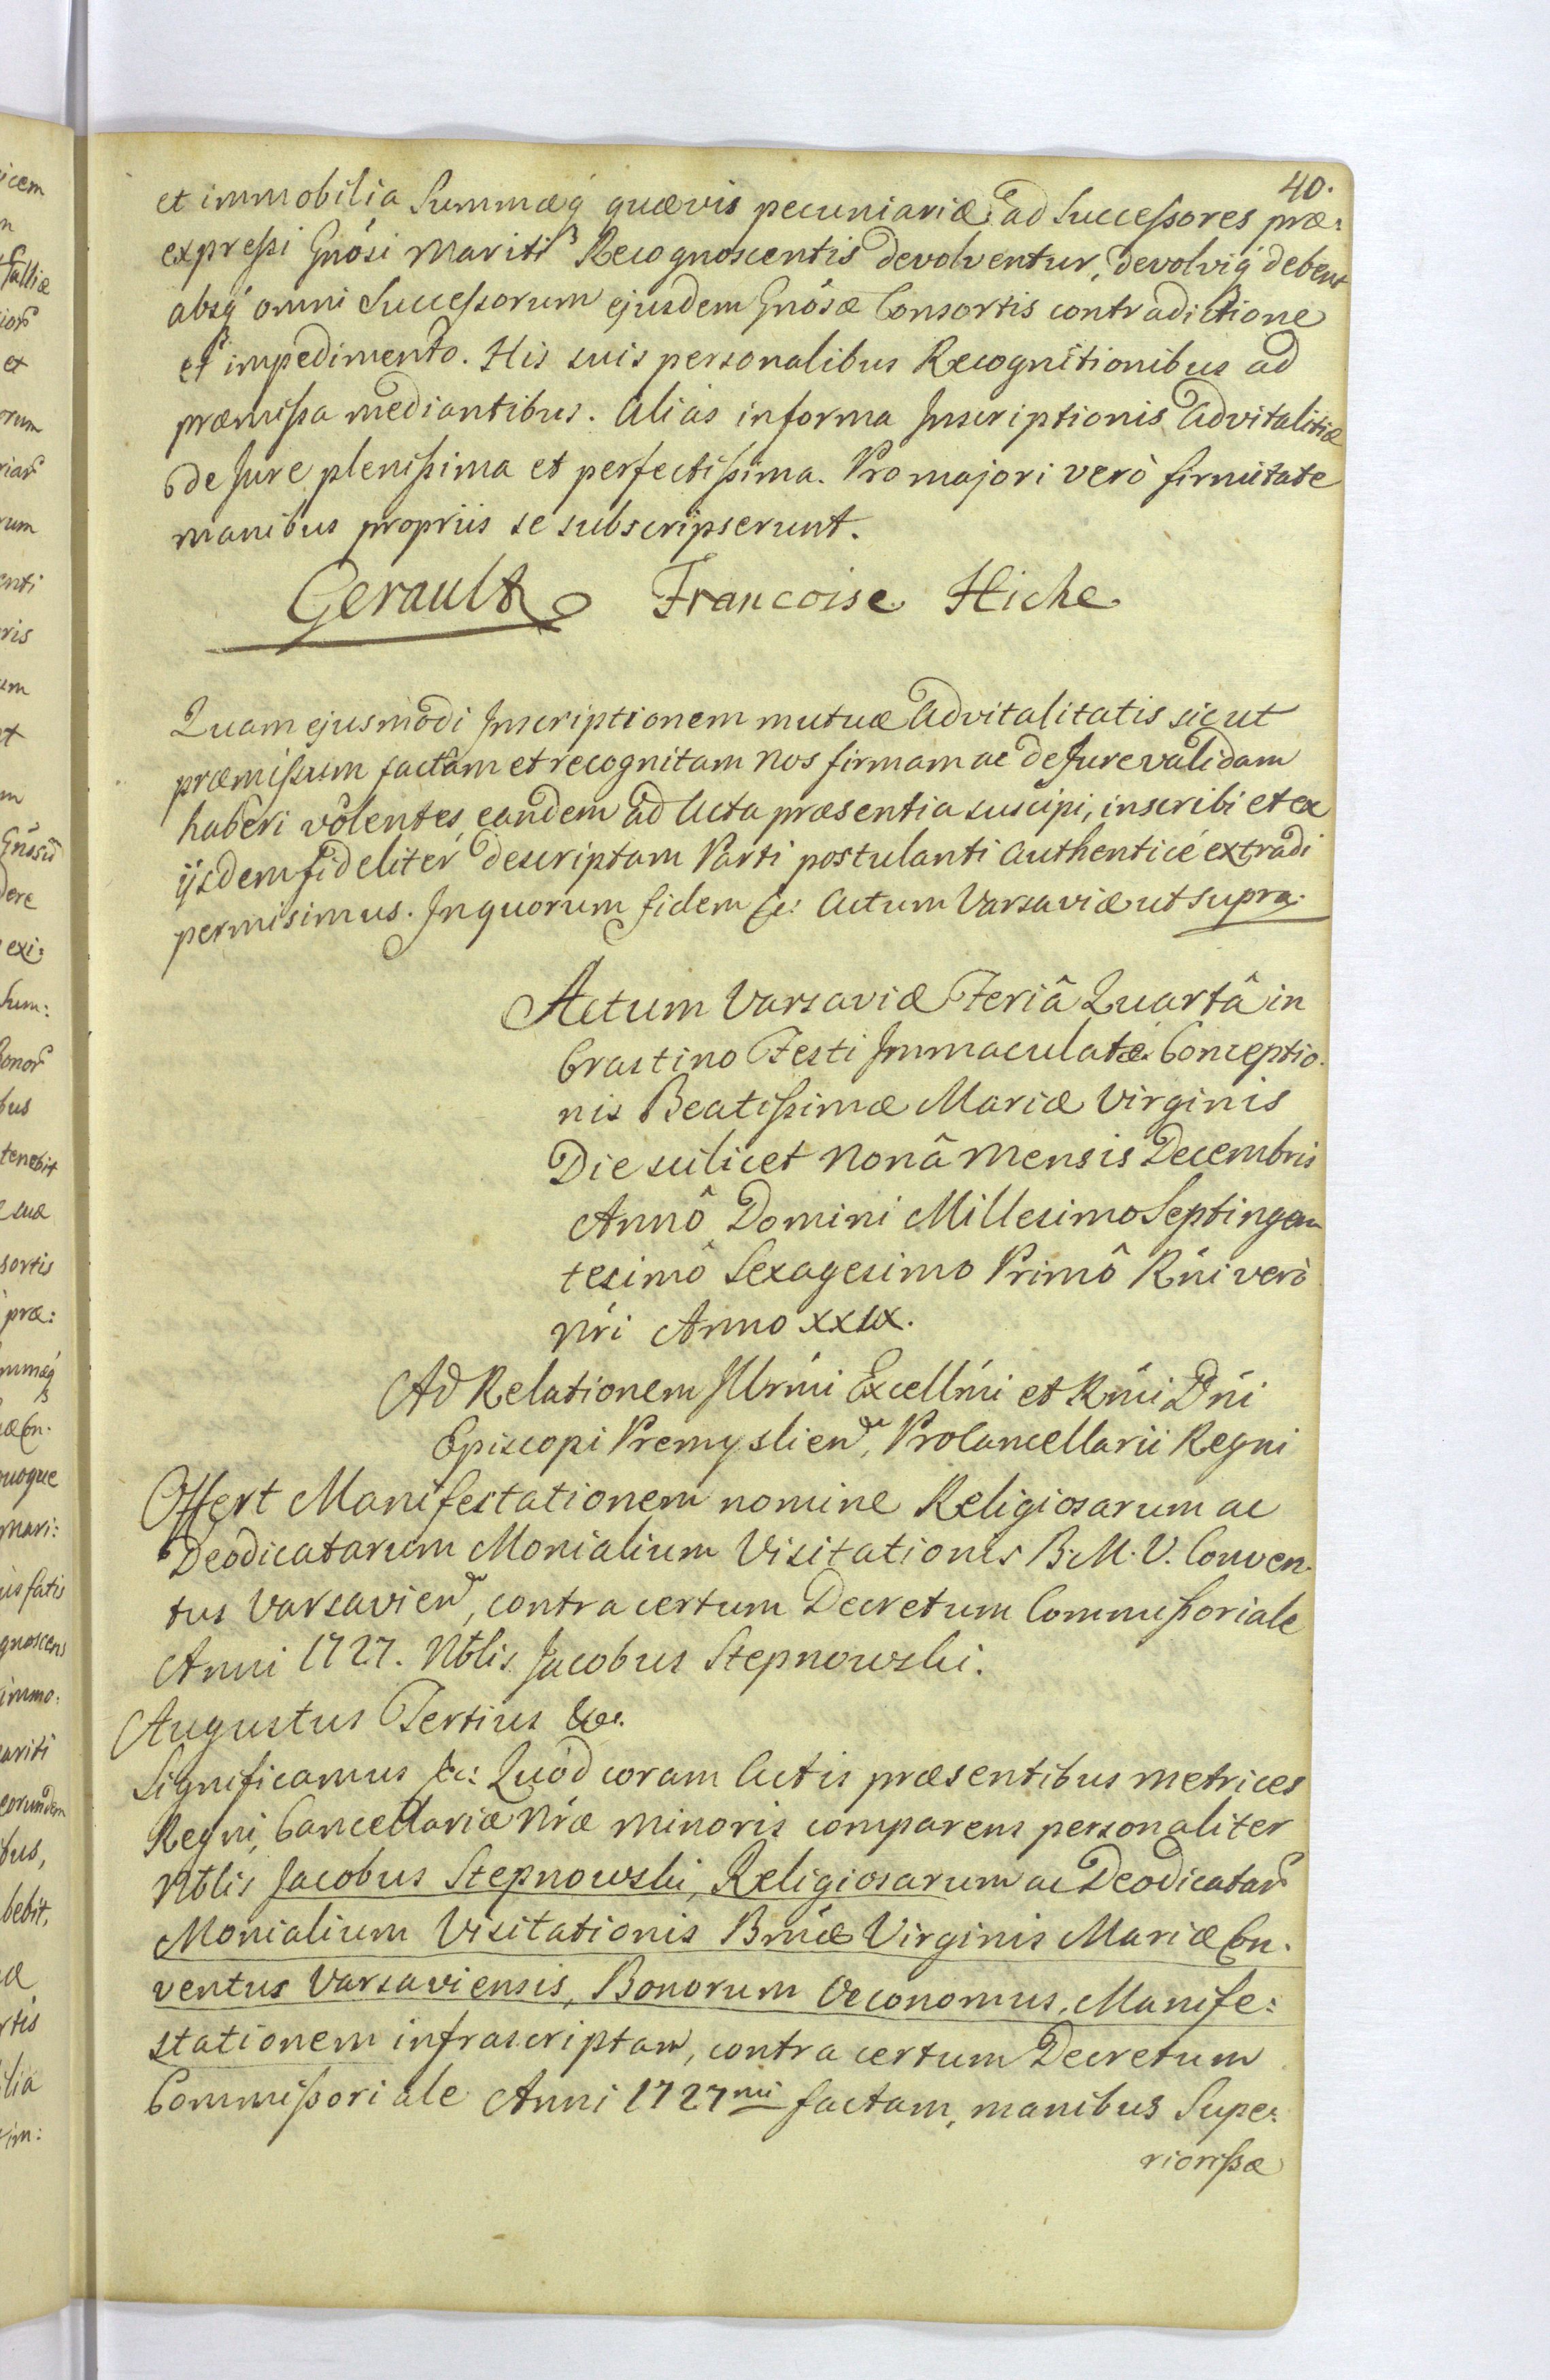 40.
et immobilia Summæq́ quævis pecuniariæ ad Successores præ:
expressi Gnósi Mariti Recognoscentis devolventur, devolviq́ debent
absq́ omni Successorum ejusdem Gnósæ Consortis contradictione
et impedimento. His suis personalibus Recognitionibus ad
præmissa mediantibus. Alias in forma Inscriptionis Advitalitiæ
de Jure plenissima et perfectissima. Pro majori verò firmitate
manibus propriis se subscripserunt.
Gerault Francoise Hiche
Quam ejusmodi Inscriptionem mutuæ Advitalitatis sicut
præmissum factam et recognitam Nos firmam ac de Jure validam
haberi volentes, eandem ad Acta præsentia suscipi, inscribi et ex
ijsdem fideliter descriptam Parti postulanti Authenticé extradi
permisimus. In quorum fidem &c: Actum Varsaviæ ut supra.
Actum Varsaviæ Feriâ Quartâ in
Crastino Festi Immaculatæ Conceptio-
nis Beatissimæ Mariæ Virginis
Die scilicet Nonâ Mensis Decembris
Annô Domini Millesimo Septingen
tesimô Sexagesimo Primô Rńi verò
Nŕi Anno XXIX.
Ad Relationem Illrḿi Excellḿi et Rńḿi Dńi
Episcopi Premyslien, ProCancellarii Regni
Offert Manifestationem nomine Religiosarum ac
Deodicatarum Monialium Visitationis B. M. V. Conven-
tus Varsavien, contra certum Decretum Commissoriale
Anni 1727. Nblis Jacobus Stepnowski.
Augustus Tertius &c.
Significamus &c: Quòd coram Actis præsentibus Metrices
Regni, Cancellariæ Nŕæ Minoris comparens personaliter
Nblis Jacobus Stepnowski, Religiosarum ac Deodicatar
Monialium Visitationis Bmæ Virginis Mariæ Con-
ventus Varsaviensis, Bonorum Oeconomus, Manife:
stationem infrascriptam, contra certum Decretum
Commissoriale Anni 1727mi factam, manibus Supe:
riorissæ